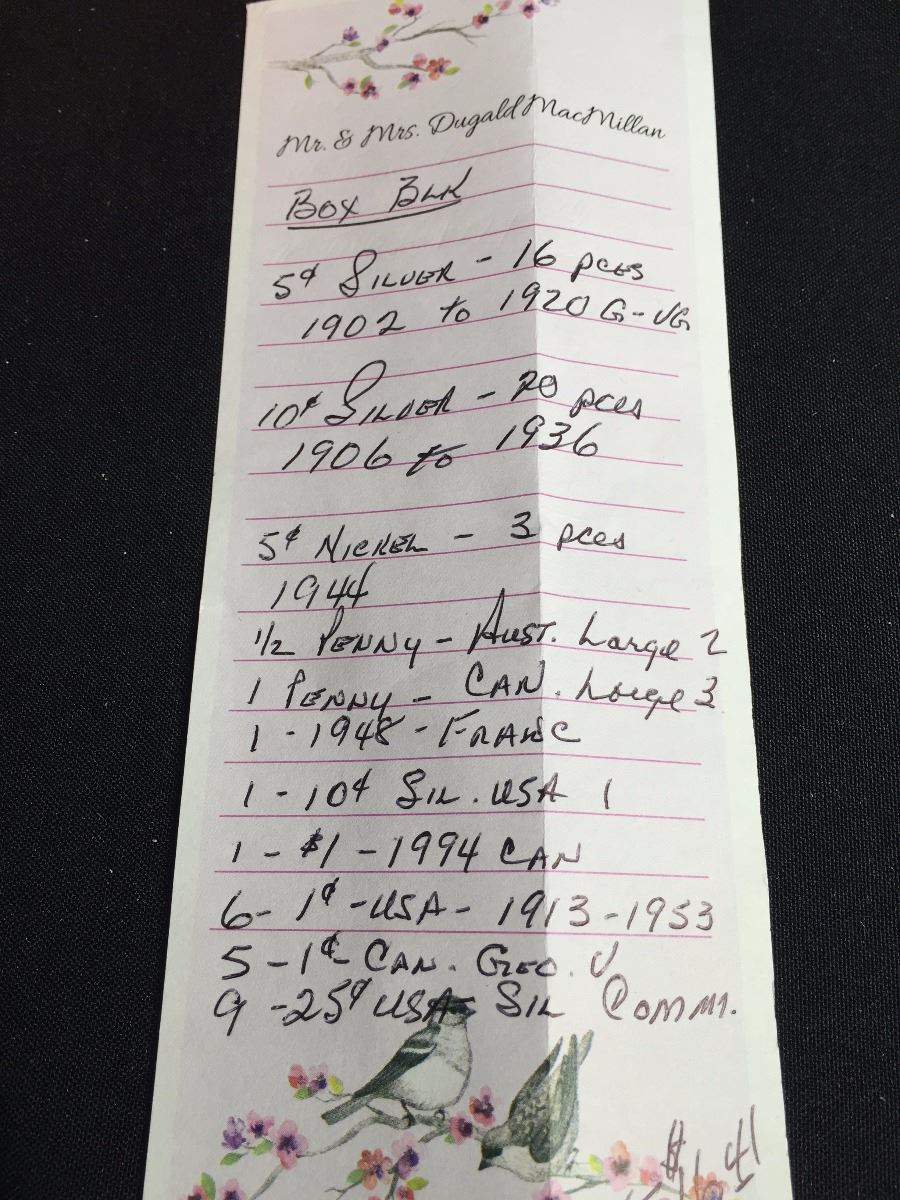 Mr. & Mrs. Dugald MacMillan
Box BLK
5¢ SILVER - 16 pces
1902 to 1920 G-VG
10¢ SILVER - 20 pces
1906 to 1936
5¢ NICKEL - 3 pces
1944
1/2 PENNY - AUST. Large 2
1 PENNY - CAN. Large 3
1 - 1948 - FRANC
1 - 10¢ SIL. USA 1
1 - $1 - 1994 CAN
6 - 1¢ - USA - 1913 - 1953
5 - 1¢ CAN. GEO. V
9 - 25¢ USA - SIL Comm.